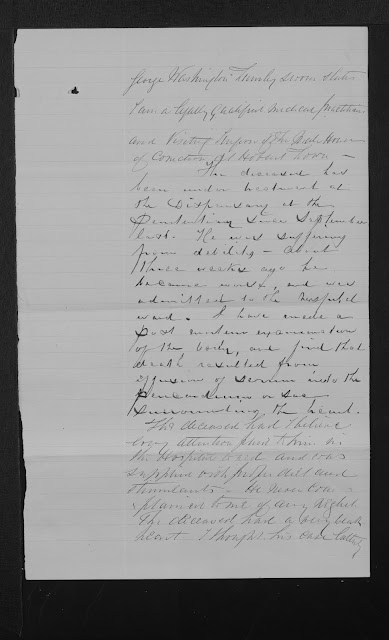 George Washington Crumby sworn states
I am a legally Qualified medical practitioner
and Visiting Surgeon of the Gaol House
of Correction, at Hobart Town -
The deceased has
been under treatment at
the Dispensary at the
Penitentiary since September
last. He was suffering
from debility - about
three weeks ago he
became worse, and was
admitted to the hospital
ward. I have made a
post mortem examination
of the body, and find that
death resulted from
effusion of serum into the
pericardium or sac
surrounding the heart.
The deceased had
every attention paid to him in
the Hospital ward and was
supplied with proper diet and
stimulants - He never com-
plained to me of any neglect
The deceased had a very weak
heart. I thought his case latterly